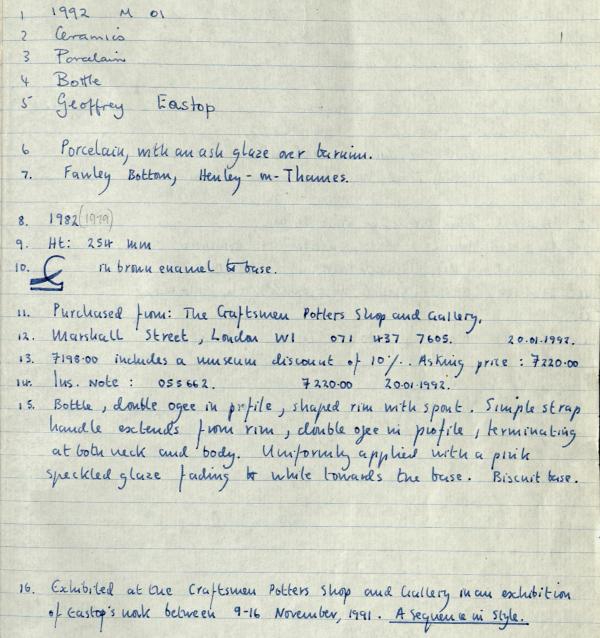 1 1992 M 01
2 Ceramics
3 Porcelain
4 Bottle
5 Geoffrey Eastop
6 Porcelain, with an ash glaze over barium.
7. Fawley Bottom, Henley-on-Thames.
8. 1982 (1979)
9. Ht: 254 mm
10. in brown enamel to base.
11. Purchased from: The Craftsmen Potters Shop and Gallery,
12. Marshall Street, London W1 071 437 7605. 20.01.1992.
13. £198.00 includes a museum discount of 10%. Asking price: £220.00
14. Ins. Note: 055662. £220.00 20.01.1992.
15. Bottle, double ogee in profile, shaped rim with spout. Simple strap
handle extends from rim, double ogee in profile, terminating
at both neck and body. Uniformly applied with a pink
speckled glaze fading to white towards the base. Biscuit base.
16. Exhibited at the Craftsmen Potters Shop and Gallery in an exhibition
of Eastop's work between 9-16 November, 1991. A Sequence in Style.